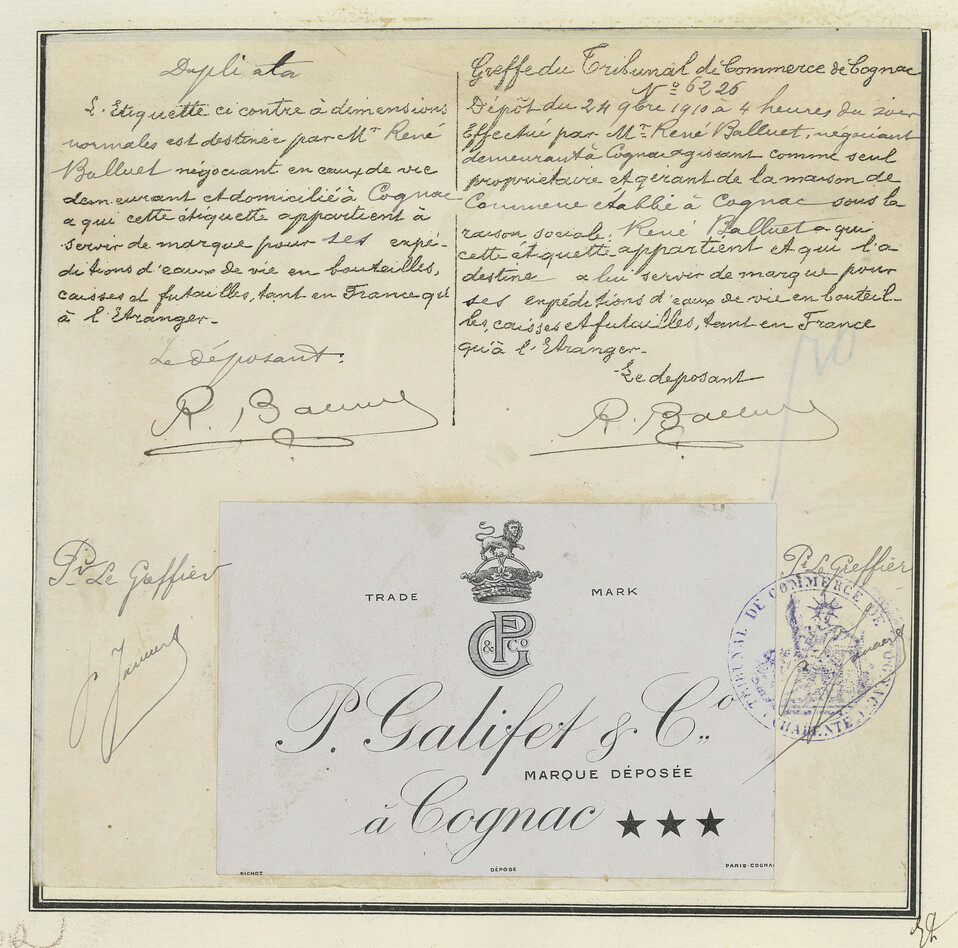 Duplicata
L'Etiquette ci contre à dimensions
normales est destinée par Mr René
Balluet négociant en eaux de vie
demeurant et domicilié à Cognac
a qui cette étiquette appartient à
servir de marque pour ses expé-
ditions d'eaux de vie en bouteilles,
caisses et futailles, tant en France qu'
à l'Etranger.
Le déposant:
Greffe du Tribunal de Commerce de Cognac
No 6226
Dépôt du 24 9bre 1910 à 4 heures du soir
Effectué par Mr René Balluet, négociant
demeurant à Cognac agissant comme seul
propriétaire et gérant de la maison de
Commerce établie à Cognac sous la
raison sociale: René Balluet a qui
cette étiquette appartient et qui l'a
destine a lui servir de marque pour
ses expéditions d'eaux de vie en bouteil-
les, caisses et futailles, tant en France
qu'à l'Etranger.
Le deposant
Pr Le Greffier
Pr Le Greffier
TRIBUNAL DE COMMERCE DE COGNAC
CHARENTE
TRADE MARK
P. Galifet & Co,,
MARQUE DÉPOSÉE
à Cognac ★★★
DÉPOSÉ
PICHOT
PARIS-COGNAC